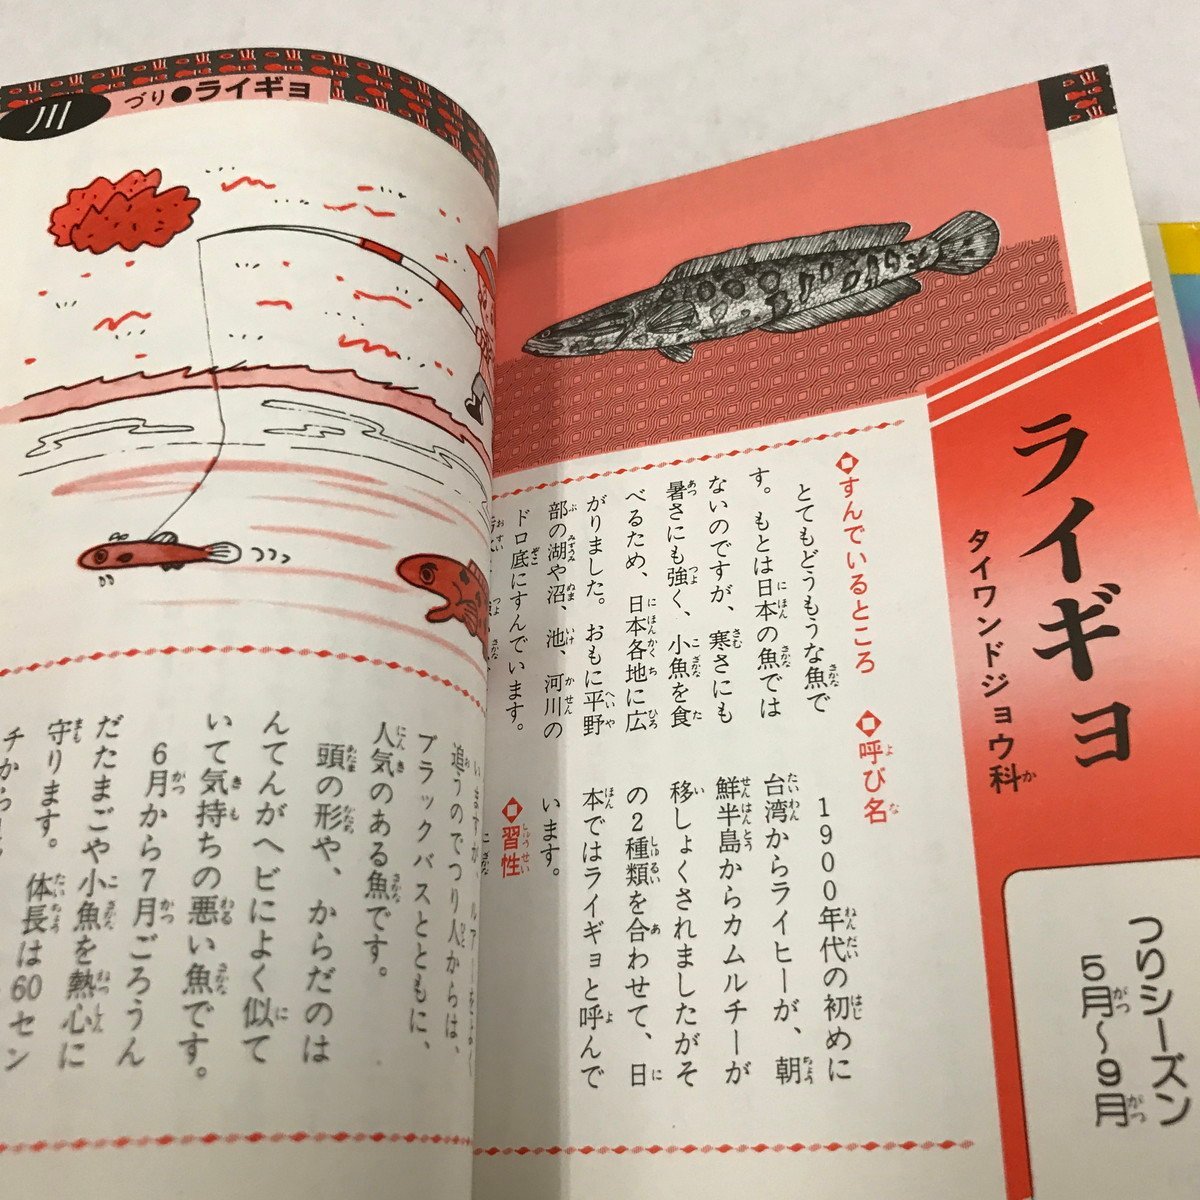 川づり●ライギョ
ライギョ
タイワンドジョウ科
つりシーズン
5月〜9月
■すんでいるところ
とてもどうもうな魚で
す。もとは日本の魚では
ないのですが、寒さにも
暑さにも強く、小魚を食
べるため、日本各地に広
がりました。おもに平野
部の湖や沼、池、河川の
ドロ底にすんでいます。
■呼び名
1900年代の初めに
台湾からライヒーが、朝
鮮半島からカムルチーが
移しょくされましたがそ
の2種類を合わせて、日
本ではライギョと呼んで
います。
■習性
追うのでつり人からは、
ブラックバスとともに、
人気のある魚です。
頭の形や、からだのは
んてんがヘビによく似て
いて気持ちの悪い魚です。
6月から7月ごろうん
だたまごや小魚を熱心に
守ります。体長は60セン